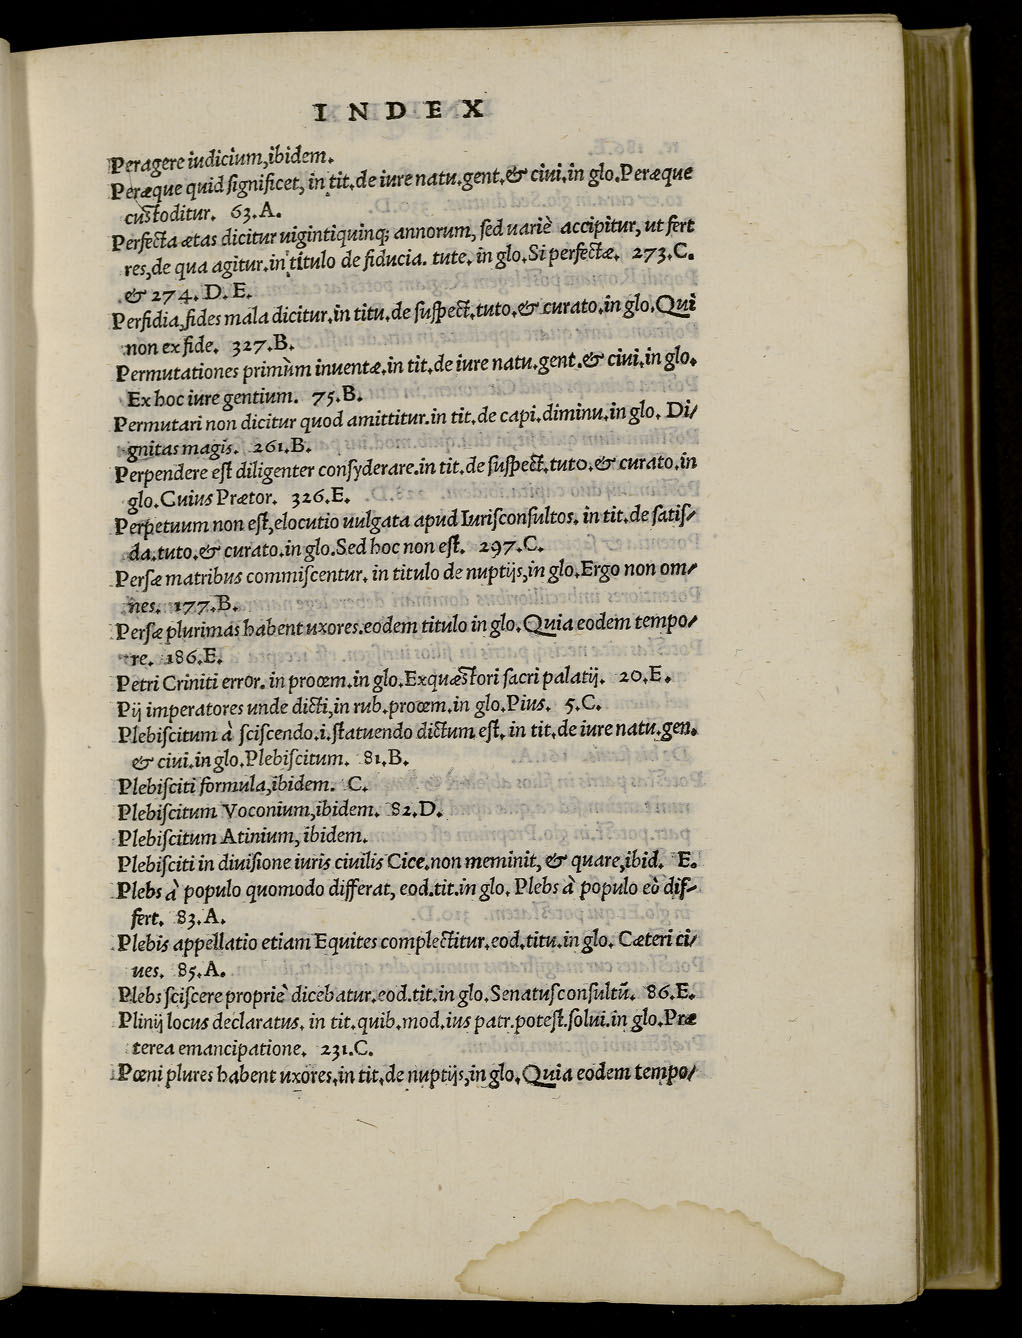 INDEX
Peragere iudicium, ibidem.
Peræque quid ſignificet, in tit. de iure natu. gent. & ciui. in glo. Peræque
cuſtoditur. 63. A.
Perfecta ætas dicitur uigintiquinq; annorum, ſed uariè accipitur, ut fert
res, de qua agitur. in titulo de fiducia. tute. in glo. Si perfectæ. 273. C.
& 274. D. E.
Perfidia, fides mala dicitur, in titu. de ſuſpect. tuto. & curato. in glo. Qui
non ex fide. 327. B.
Permutationes primùm inuentæ, in tit. de iure natu. gent. & ciui. in glo.
Ex hoc iure gentium. 75. B.
Permutari non dicitur quod amittitur. in tit. de capi. diminu. in glo. Di/
gnitas magis. 261. B.
Perpendere eſt diligenter conſyderare. in tit. de ſuſpect. tuto. & curato. in
glo. Cuius Prætor. 326. E.
Perpetuum non eſt, elocutio uulgata apud Iuriſconſultos. in tit. de ſatiſ/
da. tuto. & curato. in glo. Sed hoc non eſt. 297. C.
Perſæ matribus commiſcentur. in titulo de nuptijs, in glo. Ergo non om/
nes. 177. B.
Perſæ plurimas habent uxores. eodem titulo in glo. Quia eodem tempo/
re. 186. E.
Petri Criniti error. in proœm. in glo. Exquæſtori ſacri palatij. 20. E.
Pij imperatores unde dicti, in rub. proœm. in glo. Pius. 5. C.
Plebiſcitum à ſciſcendo. i. ſtatuendo dictum eſt. in tit. de iure natu. gen.
& ciui. in glo. Plebiſcitum. 81. B.
Plebiſciti formula, ibidem. C.
Plebiſcitum Voconium, ibidem. 82. D.
Plebiſcitum Atinium, ibidem.
Plebiſciti in diuiſione iuris ciuilis Cice. non meminit, & quare, ibid. E.
Plebs à populo quomodo differat, eod. tit. in glo. Plebs à populo eò dif/
fert. 83. A.
Plebis appellatio etiam Equites complectitur. eod. titu. in glo. Cæteri ci/
ues. 85. A.
Plebs ſciſcere propriè dicebatur. eod. tit. in glo. Senatuſconſultũ. 86. E.
Plinij locus declaratus. in tit. quib. mod. ius patr. poteſt. ſolui. in glo. Præ
terea emancipatione. 231. C.
Pœni plures habent uxores, in tit. de nuptijs, in glo. Quia eodem tempo/